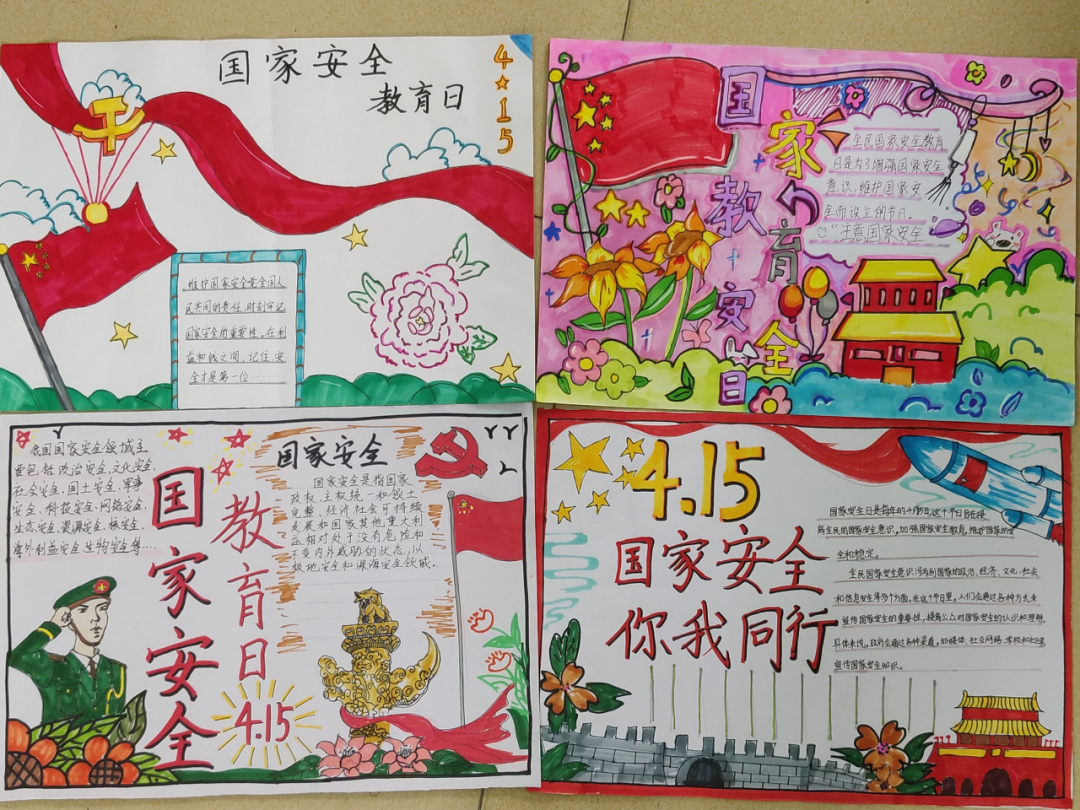 国家安全
教育日
4★15
维护国家安全是全国人
民共同的责任,时刻牢记
国家安全的重要性。在利
益和钱之间,记住安
全才是第一位……
国家
教育
安全
日
全民国家安全教育
日是为了增强国家安全
意识,维护国家安
全而设立的节日。
注意国家安全
我国国家安全领域主
要包括政治安全、文化安全、
社会安全、国土安全、军事
安全、科技安全、网络安全、
生态安全、资源安全、核安全、
海外利益安全、生物安全等…
国家安全
教育日
4.15
国家安全
国家安全是指国家
政权、主权、统一和领土
完整、经济社会可持续
发展和国家其他重大利
益相对处于没有危险和
不受内外威胁的状态,以
极地安全和深海安全领域。
4.15
国家安全
你我同行
国家安全日是每年的4月15日,这个节日旨在提
高全民的国家安全意识,加强国家安全教育,维护国家的安
全和稳定。
全民国家安全意识涉及到国家的政治、经济、文化、社会
和信息安全等多个方面,在这个节日里,人们会通过各种方式来
宣传国家安全的重要性,提高公众对国家安全的认识和理解
具体来说,政府会通过各种渠道,如媒体、社交网络、学校和社区
宣传国家安全知识。